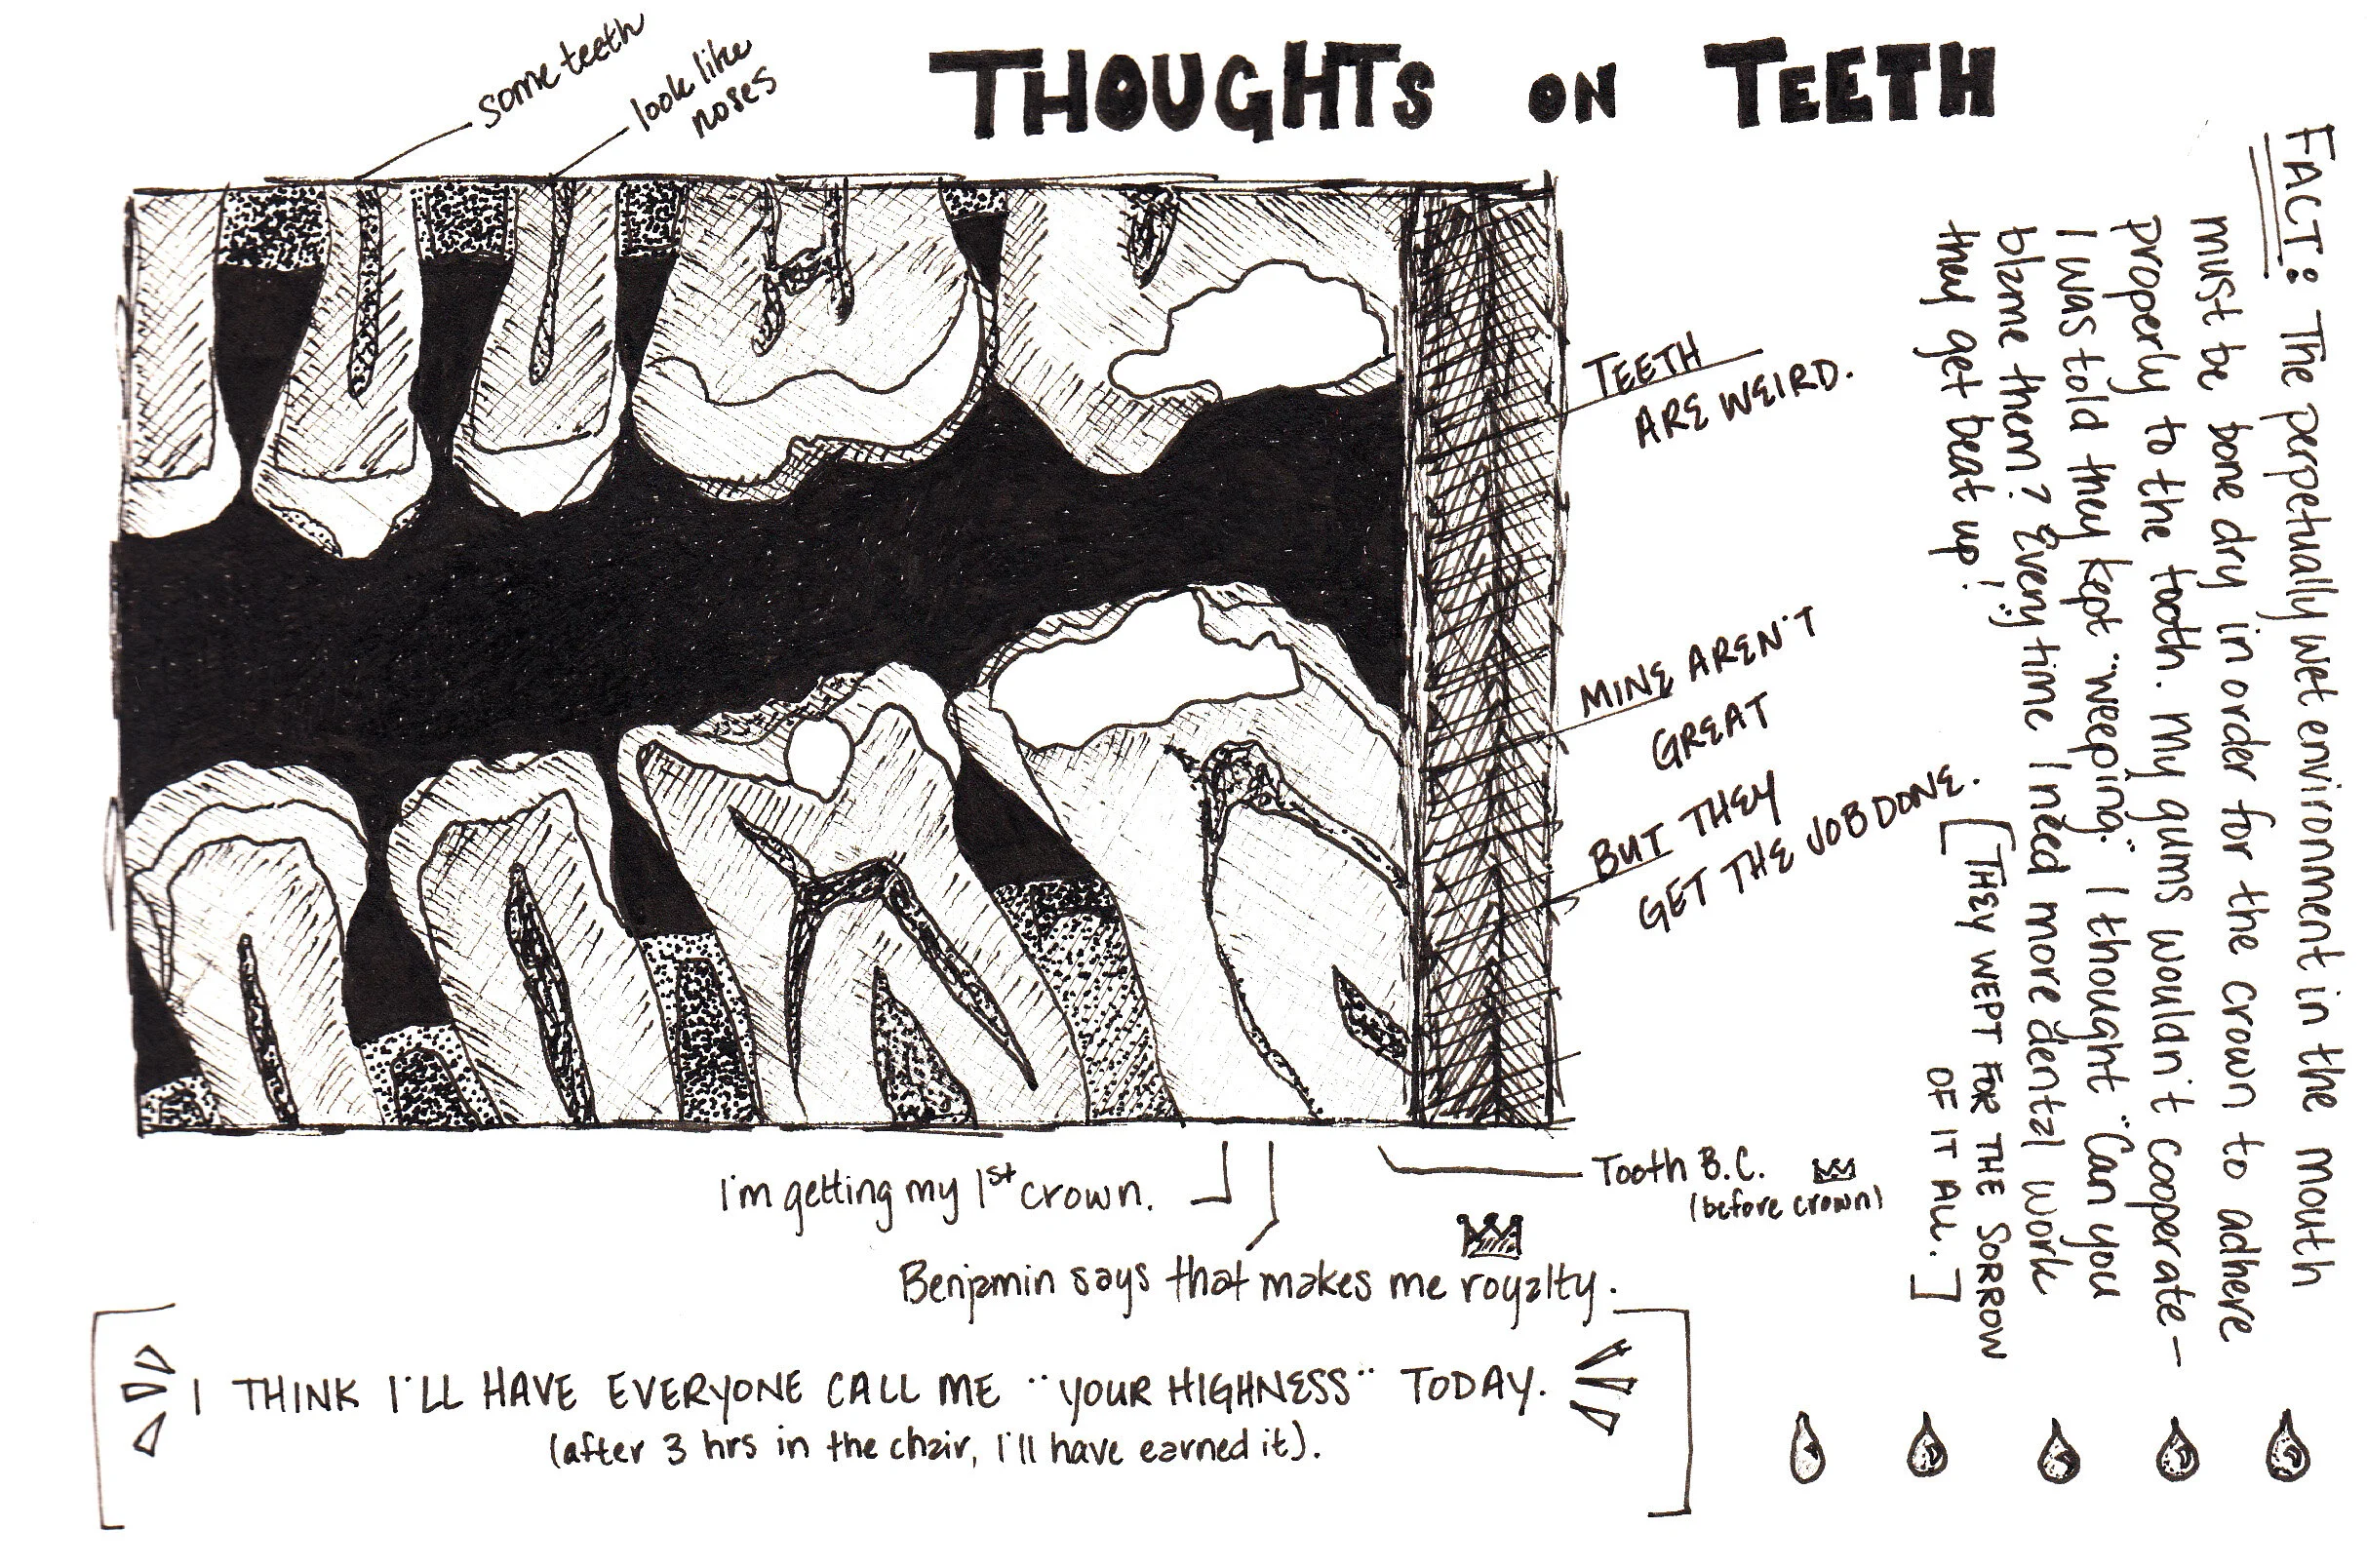 THOUGHTS ON TEETH
some teeth
look like
noses
TEETH
ARE WEIRD.
MINE AREN'T
GREAT
BUT THEY
GET THE JOB DONE.
FACT: The perpetually wet environment in the mouth
must be bone dry in order for the crown to adhere
properly to the tooth. My gums wouldn't cooperate—
I was told they kept "weeping." I thought "Can you
blame them? Every time I need more dental work
they get beat up!"
[THEY WEPT FOR THE SORROW
OF IT ALL.]
Tooth B.C.
(before crown)
I'm getting my 1st crown.
Benjamin says that makes me royalty.
I THINK I'LL HAVE EVERYONE CALL ME "YOUR HIGHNESS" TODAY.
(after 3 hrs in the chair, I'll have earned it).